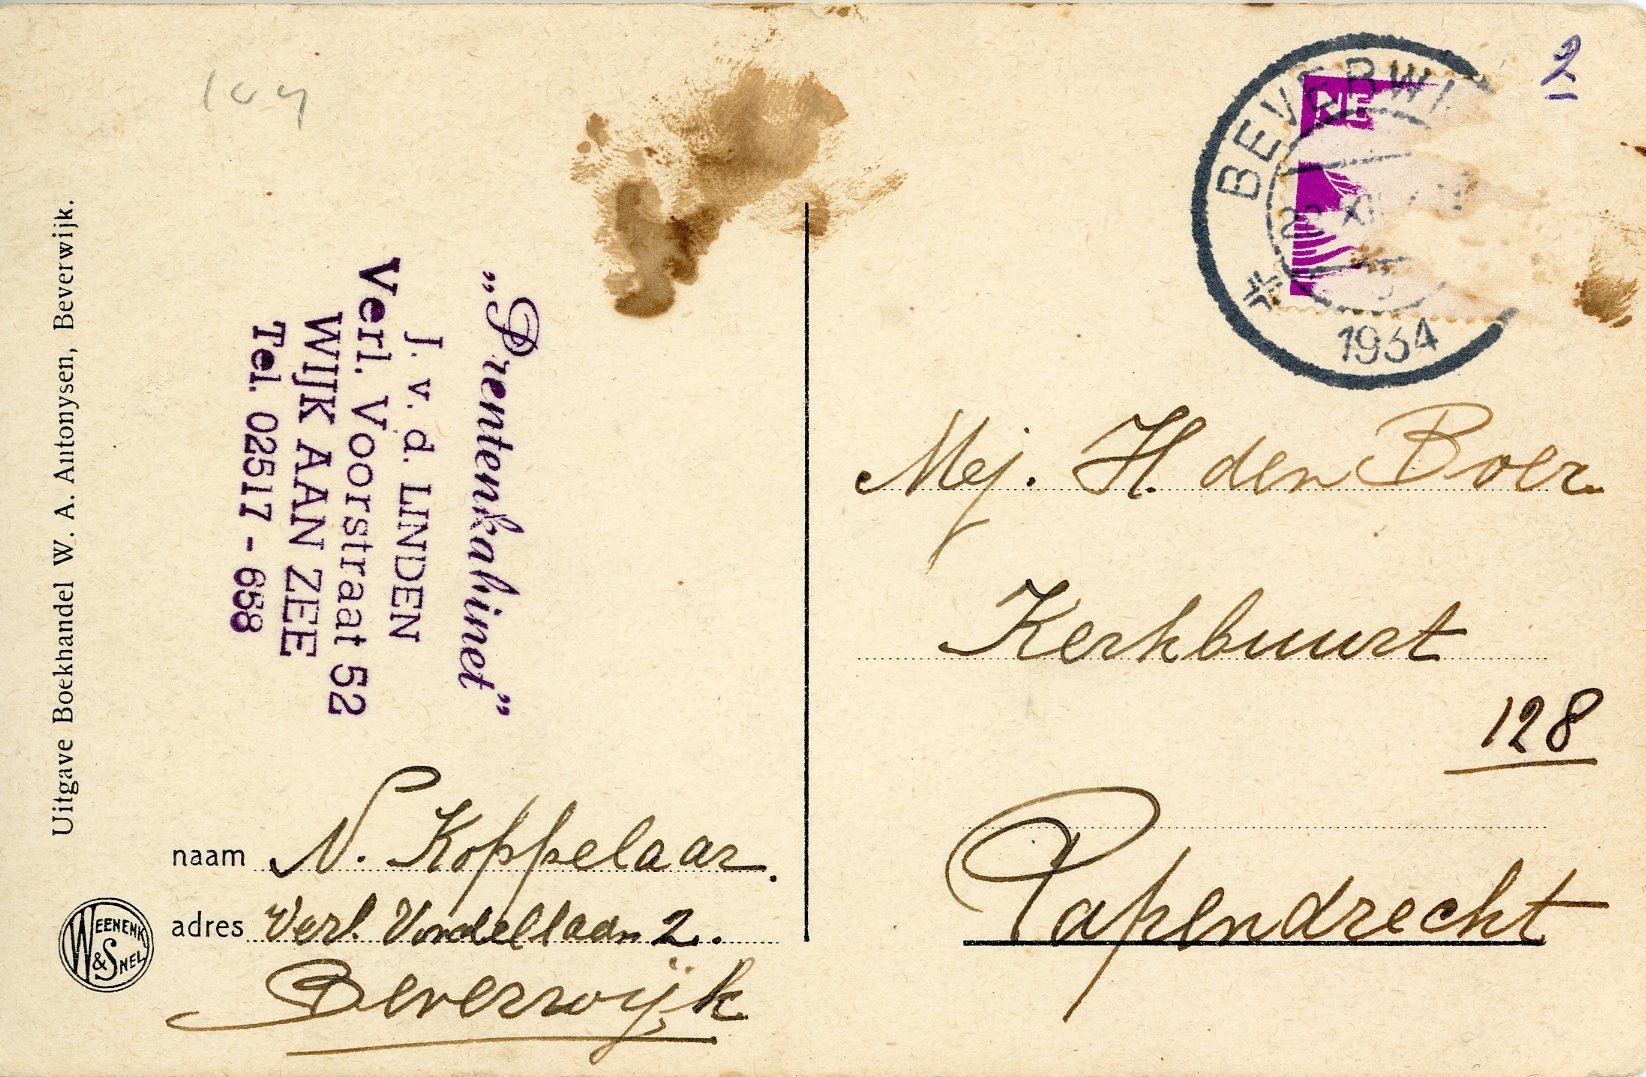 Uitgave Boekhandel W. A. Antonysen, Beverwijk.
„Prentenkabinet”
J. v. d. LINDEN
Verl. Voorstraat 52
WIJK AAN ZEE
Tel. 02517 - 658
naam N. Koppelaar.
adres Verl. Vondellaan 2.
Beverwijk
WEENENK & SNEL
2
BEVERWI
1934
Mej. H. den Boer.
Kerkbuurt
128
Papendrecht